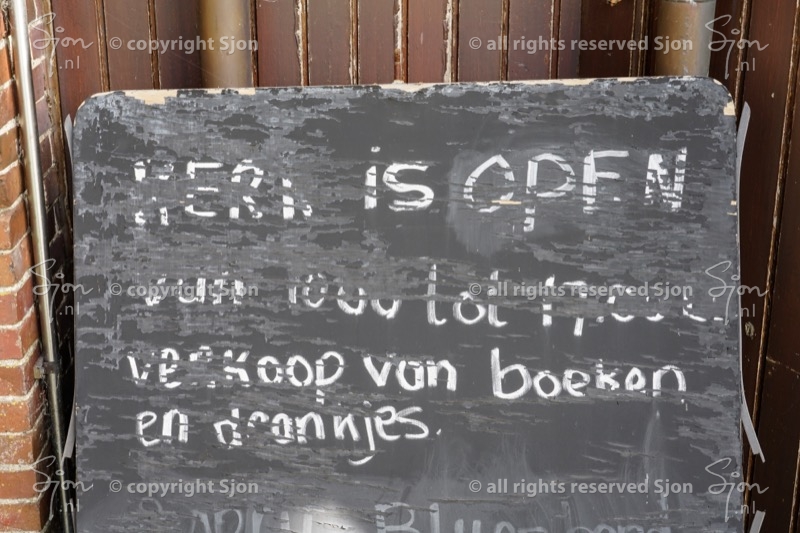 Sjon .nl © copyright Sjon © all rights reserved Sjon Sjon .nl
KERK is OPEN
Sjon .nl © copyright Sjon © all rights reserved Sjon Sjon .nl
van 1000 tot
verkoop van boeken
en drankjes.
Sjon .nl © copyright Sjon © all rights reserved Sjon Sjon .nl